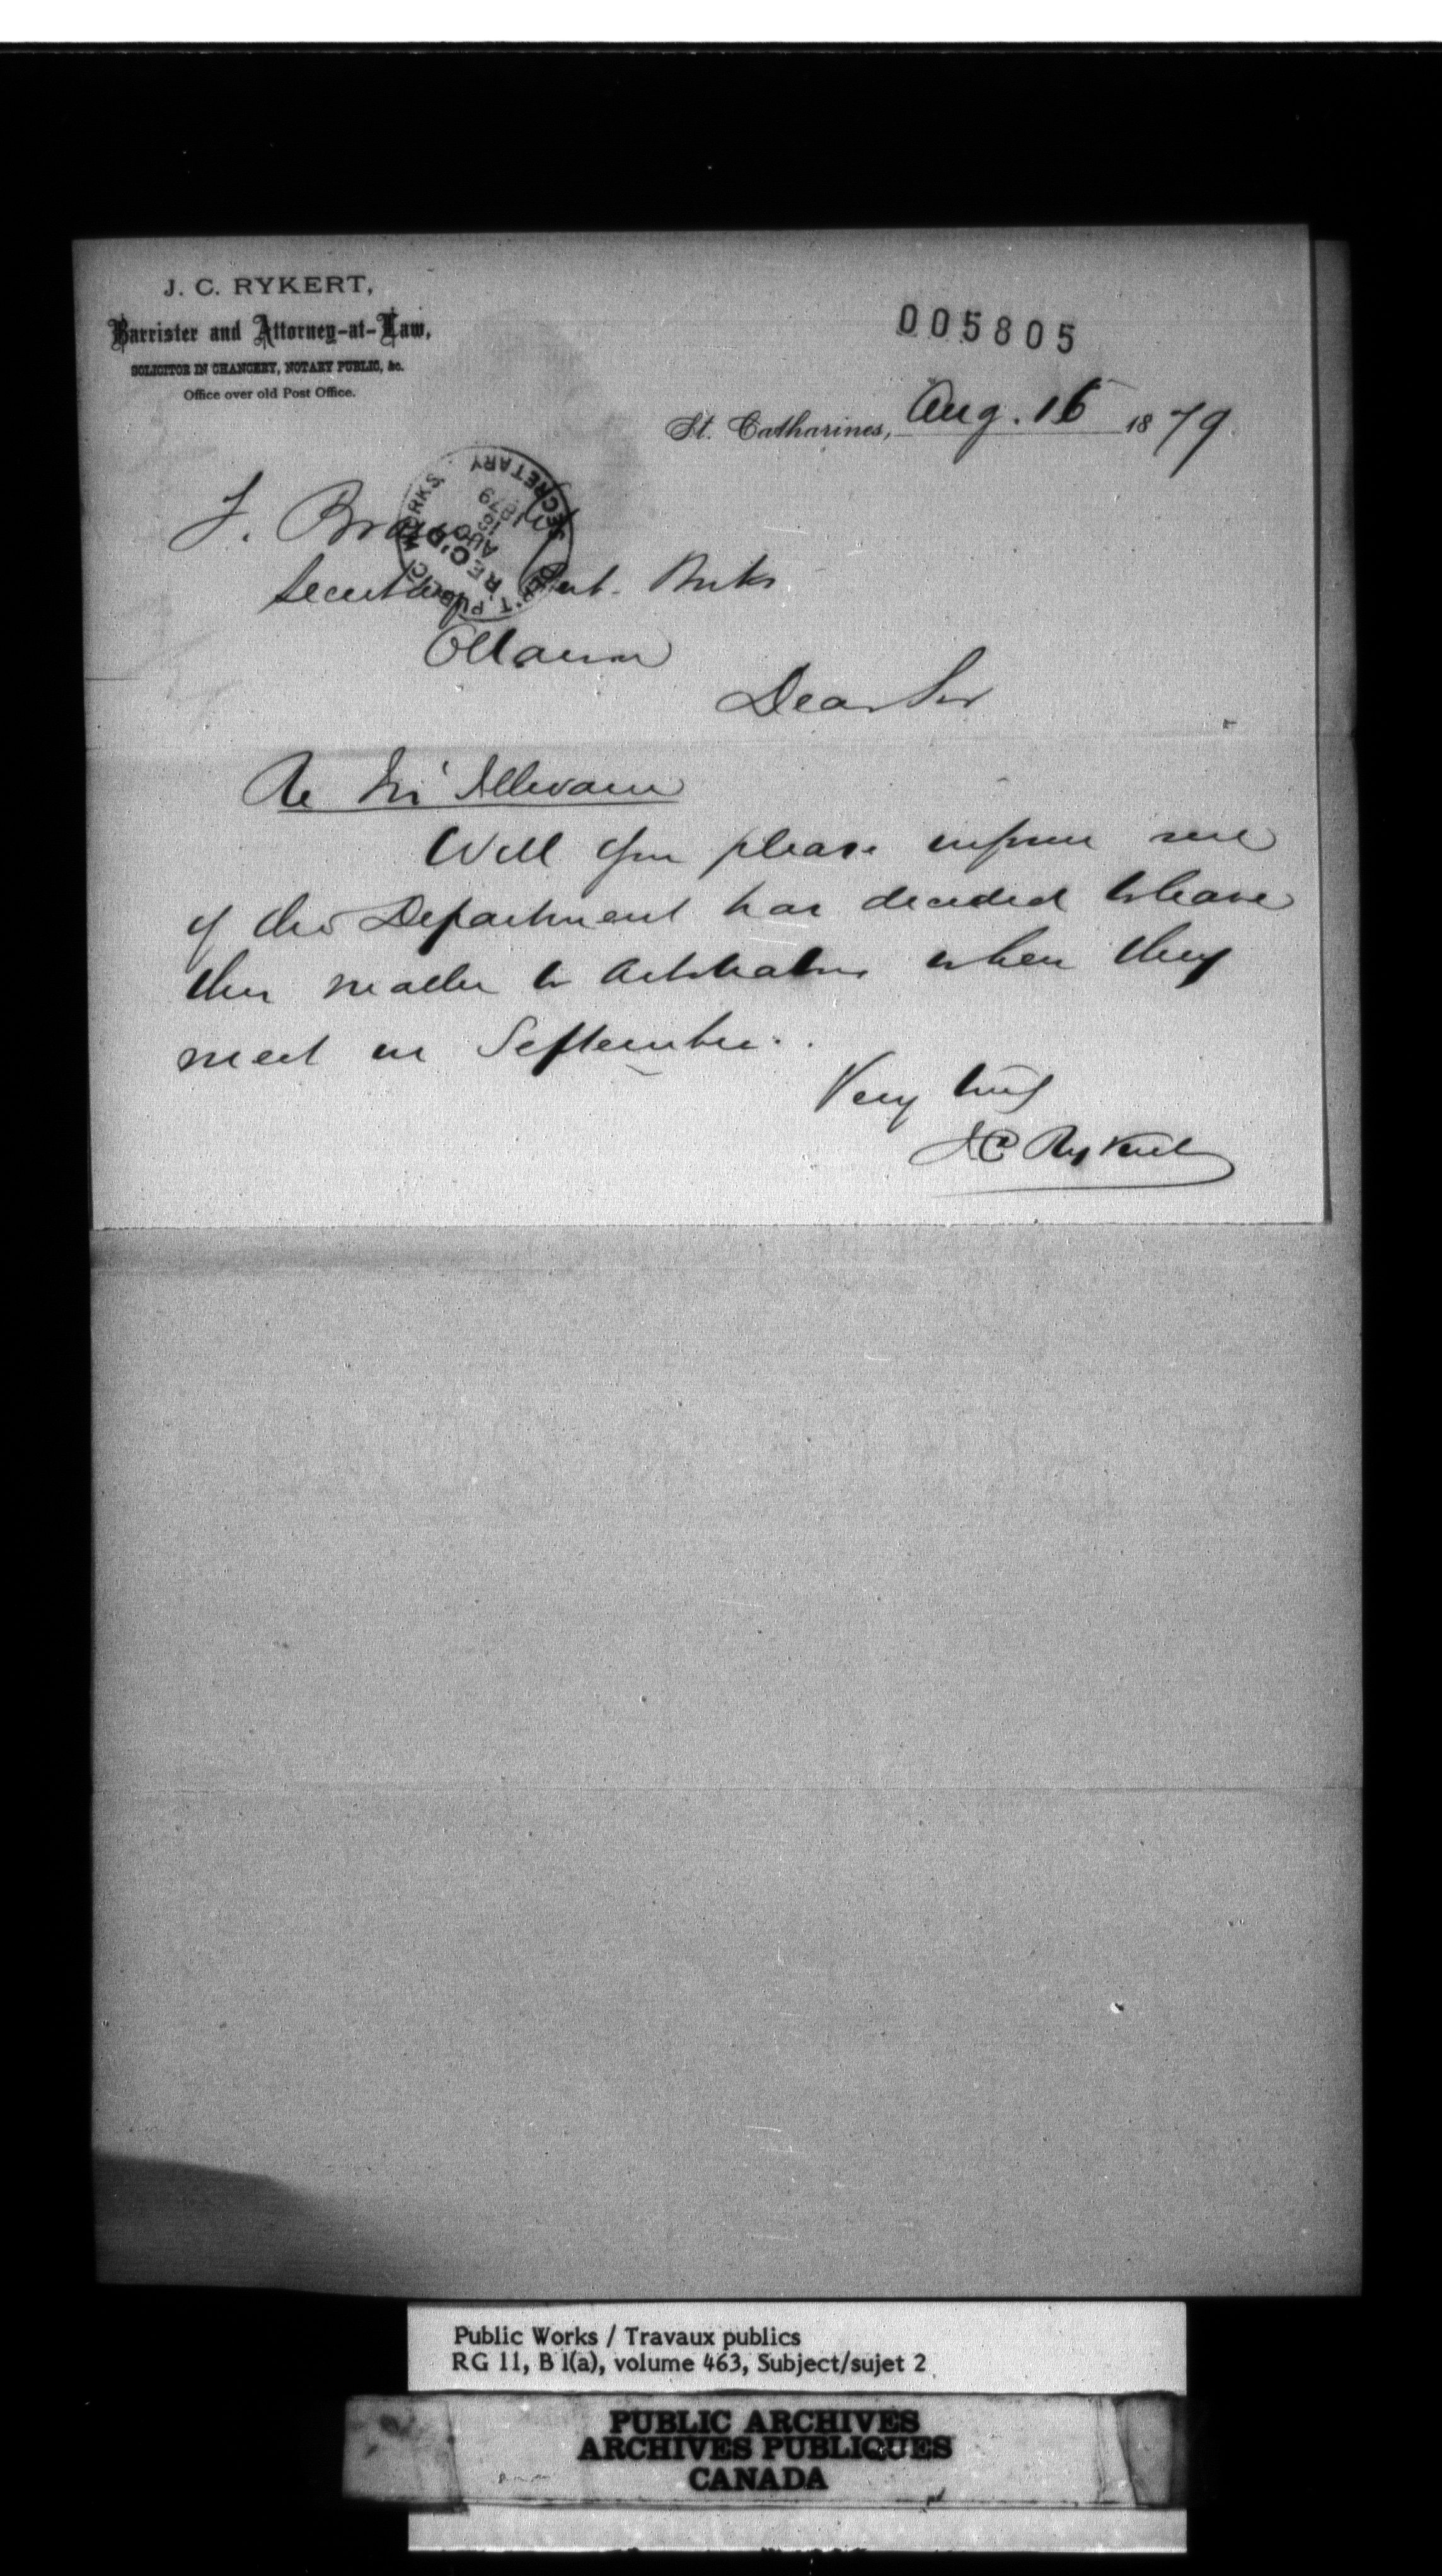 J. C. RYKERT,
Barrister and Attorney-at-Law,
SOLICITOR IN CHANCERY, NOTARY PUBLIC, &c.
Office over old Post Office.
005805
St. Catharines, Aug. 16 1879.
F. Braun
Secretary Pub. Works
Ottawa
DEP'T. PUBLIC WORKS. SECRETARY
REC'D
AUG
1879
Dear Sir
Re
Will you please inform me
if the Department has decided to leave
this matter to Arbitrators when they
meet in September.
Very truly
J C Rykert
Public Works / Travaux publics
RG 11, B 1(a), volume 463, Subject/sujet 2
PUBLIC ARCHIVES
ARCHIVES PUBLIQUES
CANADA